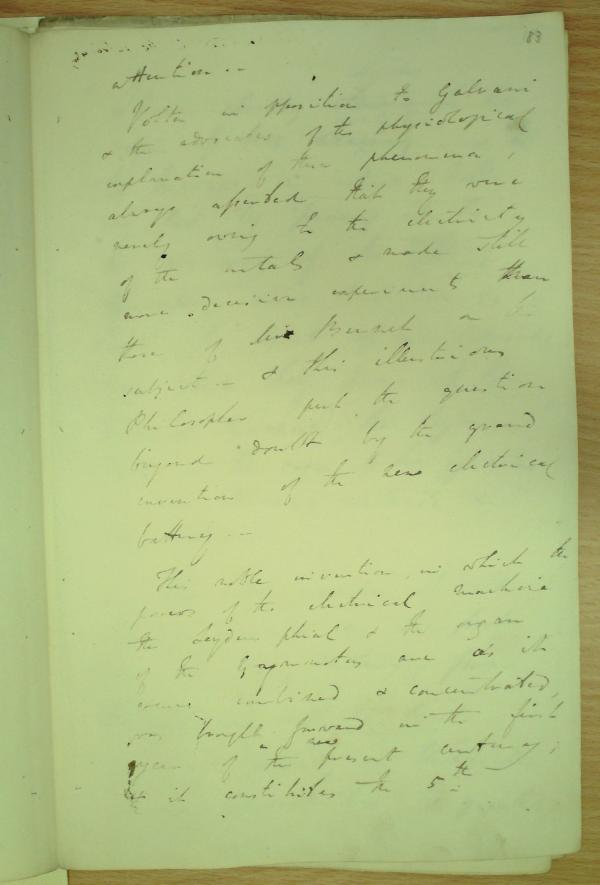 83
attention. —
Volta in opposition to Galvani
& the advocates of the physiological
explanation of these phenomena,
always asserted that they were
merely owing to the electricity
of the metals & made still
more decisive experiments than
those of Bennet on the
subject. — & this illustrious
Philosopher put the question
beyond doubt by the grand
invention of the new electrical
battery. —
This noble invention, in which the
powers of the electrical machine
the Leyden phial & the organ
of the Gymnotus are as it
were combined & concentrated,
was brought forward in the first
year of the present century;
it constitutes the 5th